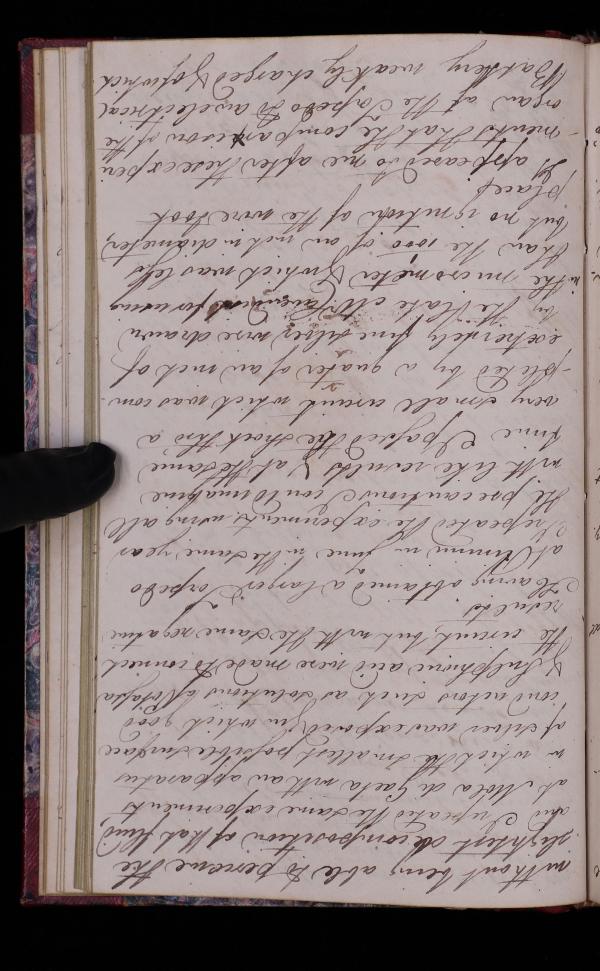 without being able to perceive the
slightest decomposition of that fluid
and I repeated the same experiments
at Mola di Gaeta with an apparatus
in which the smallest possible surface
of silver was exposed, & in which good
conductors such as solutions of Potassa
& Sulphuric acid were made to connect
the circuit, but with the same negative
results
Having obtained a larger Torpedo
at Rimini in June in the same year
I repeated the experiments using all
the precautions I could imagine
with like results & at the same
time I passed the shock thro a
very small circuit which was com-
-pleted by a quater of an inch of
extremely fine silver wire drawn
by the late Mr Cavendish for using
in the micrometer & which was less
than the 1/1000 of an inch in diameter,
but no ignition of the wire took
place
It appeared to me after these experi
-ments that the comparison of the
organ of the Torpedo to an electrical
Battery weakly charged & of which